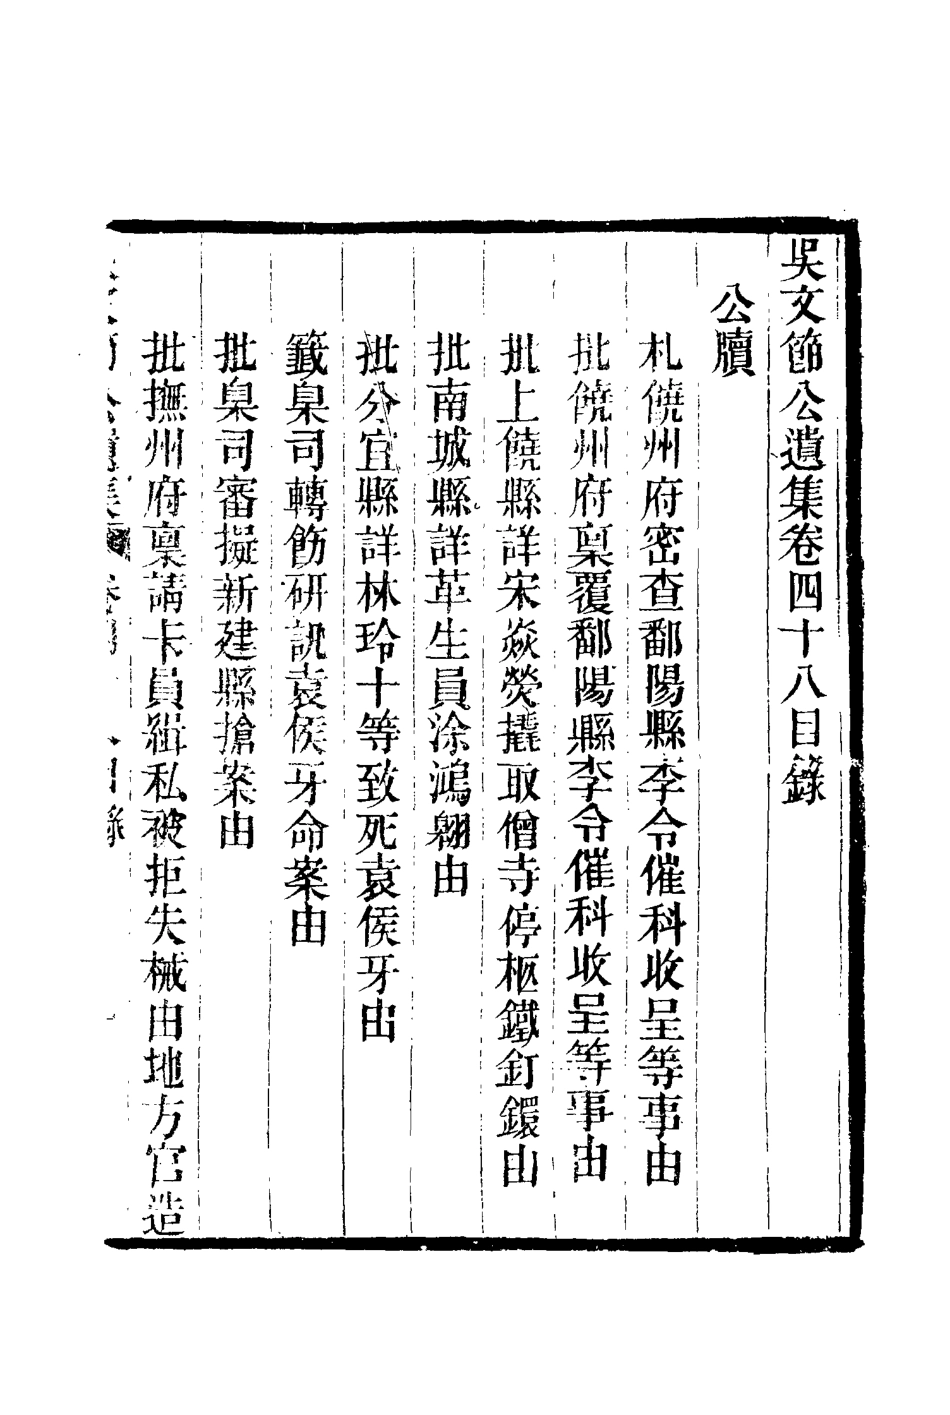 吳文節公遺集卷四十八目錄
公牘
札饒州府密查鄱陽縣李令催科收呈等事由
批饒州府稟覆鄱陽縣李令催科收呈等事由
批上饒縣詳宋焱熒撬取僧寺停柩鐵釘鐶由
批南城縣詳革生員涂鴻翱由
批分宜縣詳林玲十等致死袁侯牙由
籤臬司轉飭研訊袁侯牙命案由
批臬司審擬新建縣搶案由
批撫州府稟請卡員緝私被拒失械由地方官造